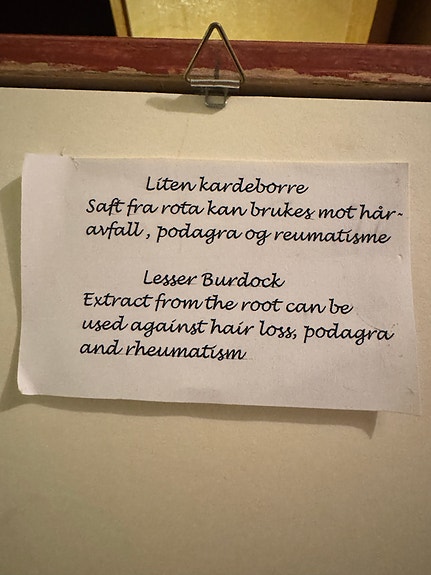 Liten kardeborre
Saft fra rota kan brukes mot hår-
avfall, podagra og reumatisme
Lesser Burdock
Extract from the root can be
used against hair loss, podagra
and rheumatism